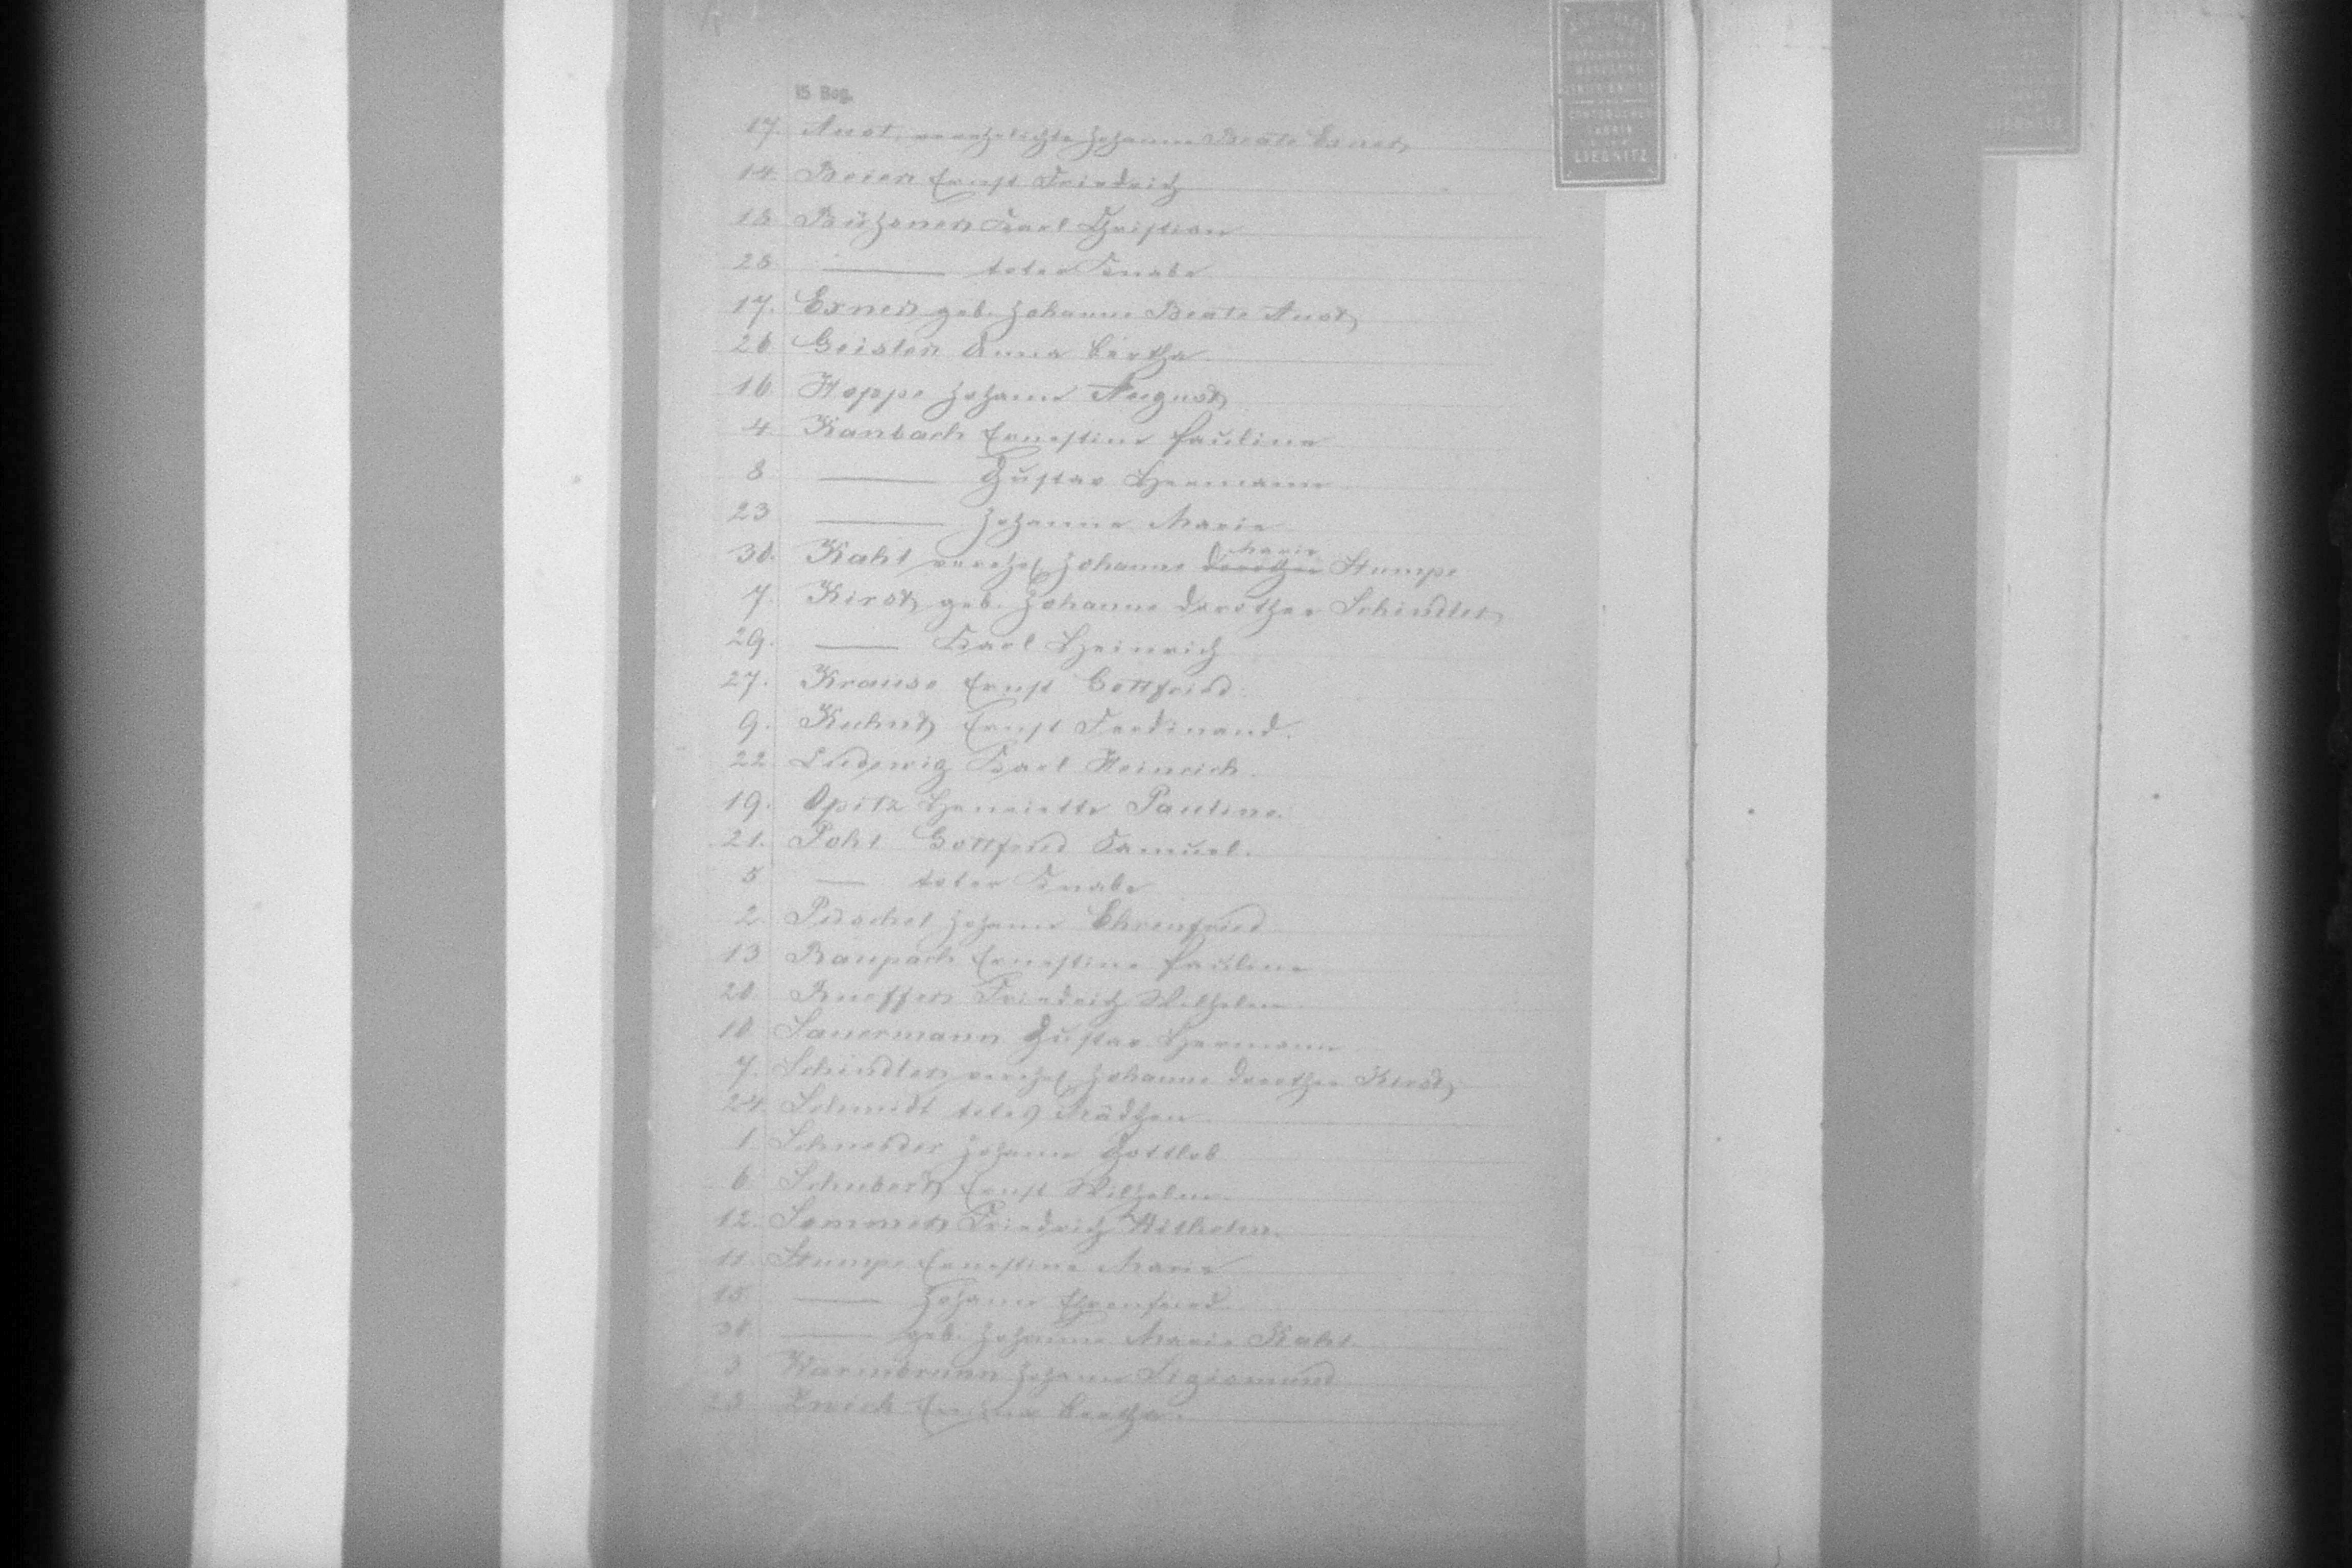 15 Bog.
17. Aust, verehelichte Johanne Beate Exner
14. Beier Ernst Friedrich
18. Büchsner Karl Christian
28. ——— toter Knabe
17. Exner geb. Johanne Beate Aust
26. Geisler Anna Bertha
16. Hoppe Johann August
4. Kanbach Ernestine Pauline
8. ——— Gustav Hermann
23. ——— Johanne Marie
30. Kahl verehel. Johanne Marie Stumpe
7. Kirst, geb. Johanne Dorothea Schindler
29. ——— Karl Heinrich
27. Krause Ernst Gottfried
9. Kuhnt Ernst Ferdinand.
22. Ludewig Karl Heinrich.
19. Opitz Henriette Pauline.
21. Pohl Gottfried Samuel.
5. — toter Knabe
2. Püschel Johann Ehrenfried
13. Raupach Ernestine Pauline
20. Rueffer Friedrich Wilhelm
10. Sauermann Gustav Hermann
7. Schindler, verehel. Johanne Dorothea Kirst
24. Schmidt totes Mädchen
1. Schneider Johann Gottlob
6. Schubert Ernst Wilhelm.
12. Sommer Friedrich Wilhelm.
11. Stumpe Ernestine Marie
15. ——— Johann Ehrenfried
30. ——— geb. Johanne Marie Kahl
3. Johann Sigismund
25. Bertha.
LIEGNITZ